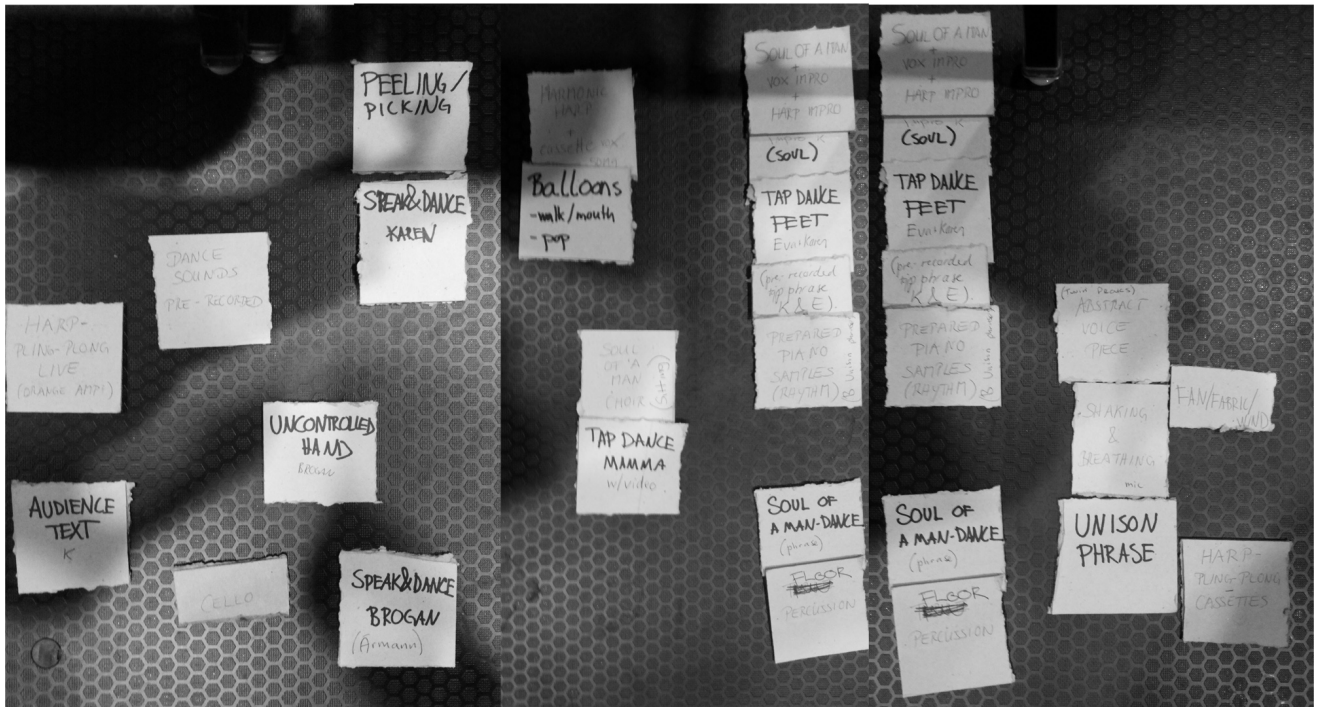 PEELING/
PICKING
SPEAK&DANCE
KAREN
DANCE
SOUNDS
PRE-RECORDED
HARP-
PLING-PLONG
LIVE
(ORANGE AMP!)
UNCONTROLLED
HAND
BROGAN
AUDIENCE
TEXT
K
CELLO
SPEAK&DANCE
BROGAN
(Ármann)
HARMONIC
HARP
+
cassette
Balloons
-walk/mouth
-pop
SOUL
OF A
MAN
CHOIR
TAP DANCE
MAMMA
w/video
SOUL OF A MAN
+
VOX IMPRO
+
HARP IMPRO
(SOUL)
TAP DANCE
FEET
(pre-recorded
phrase
K & E).
PREPARED
PIANO
SAMPLES
(RHYTHM)
SOUL OF
A MAN-DANCE
(phrase)
FLOOR
PERCUSSION
SOUL OF A MAN
+
VOX IMPRO
+
HARP IMPRO
(SOUL)
TAP DANCE
FEET
(pre-recorded
phrase
K & E).
PREPARED
PIANO
SAMPLES
(RHYTHM)
SOUL OF
A MAN-DANCE
(phrase)
FLOOR
PERCUSSION
ABSTRACT
VOICE
PIECE
FAN/FABRIC/
WIND
SHAKING
&
BREATHING
mic
UNISON
PHRASE
HARP-
PLING-PLONG
-
CASSETTES